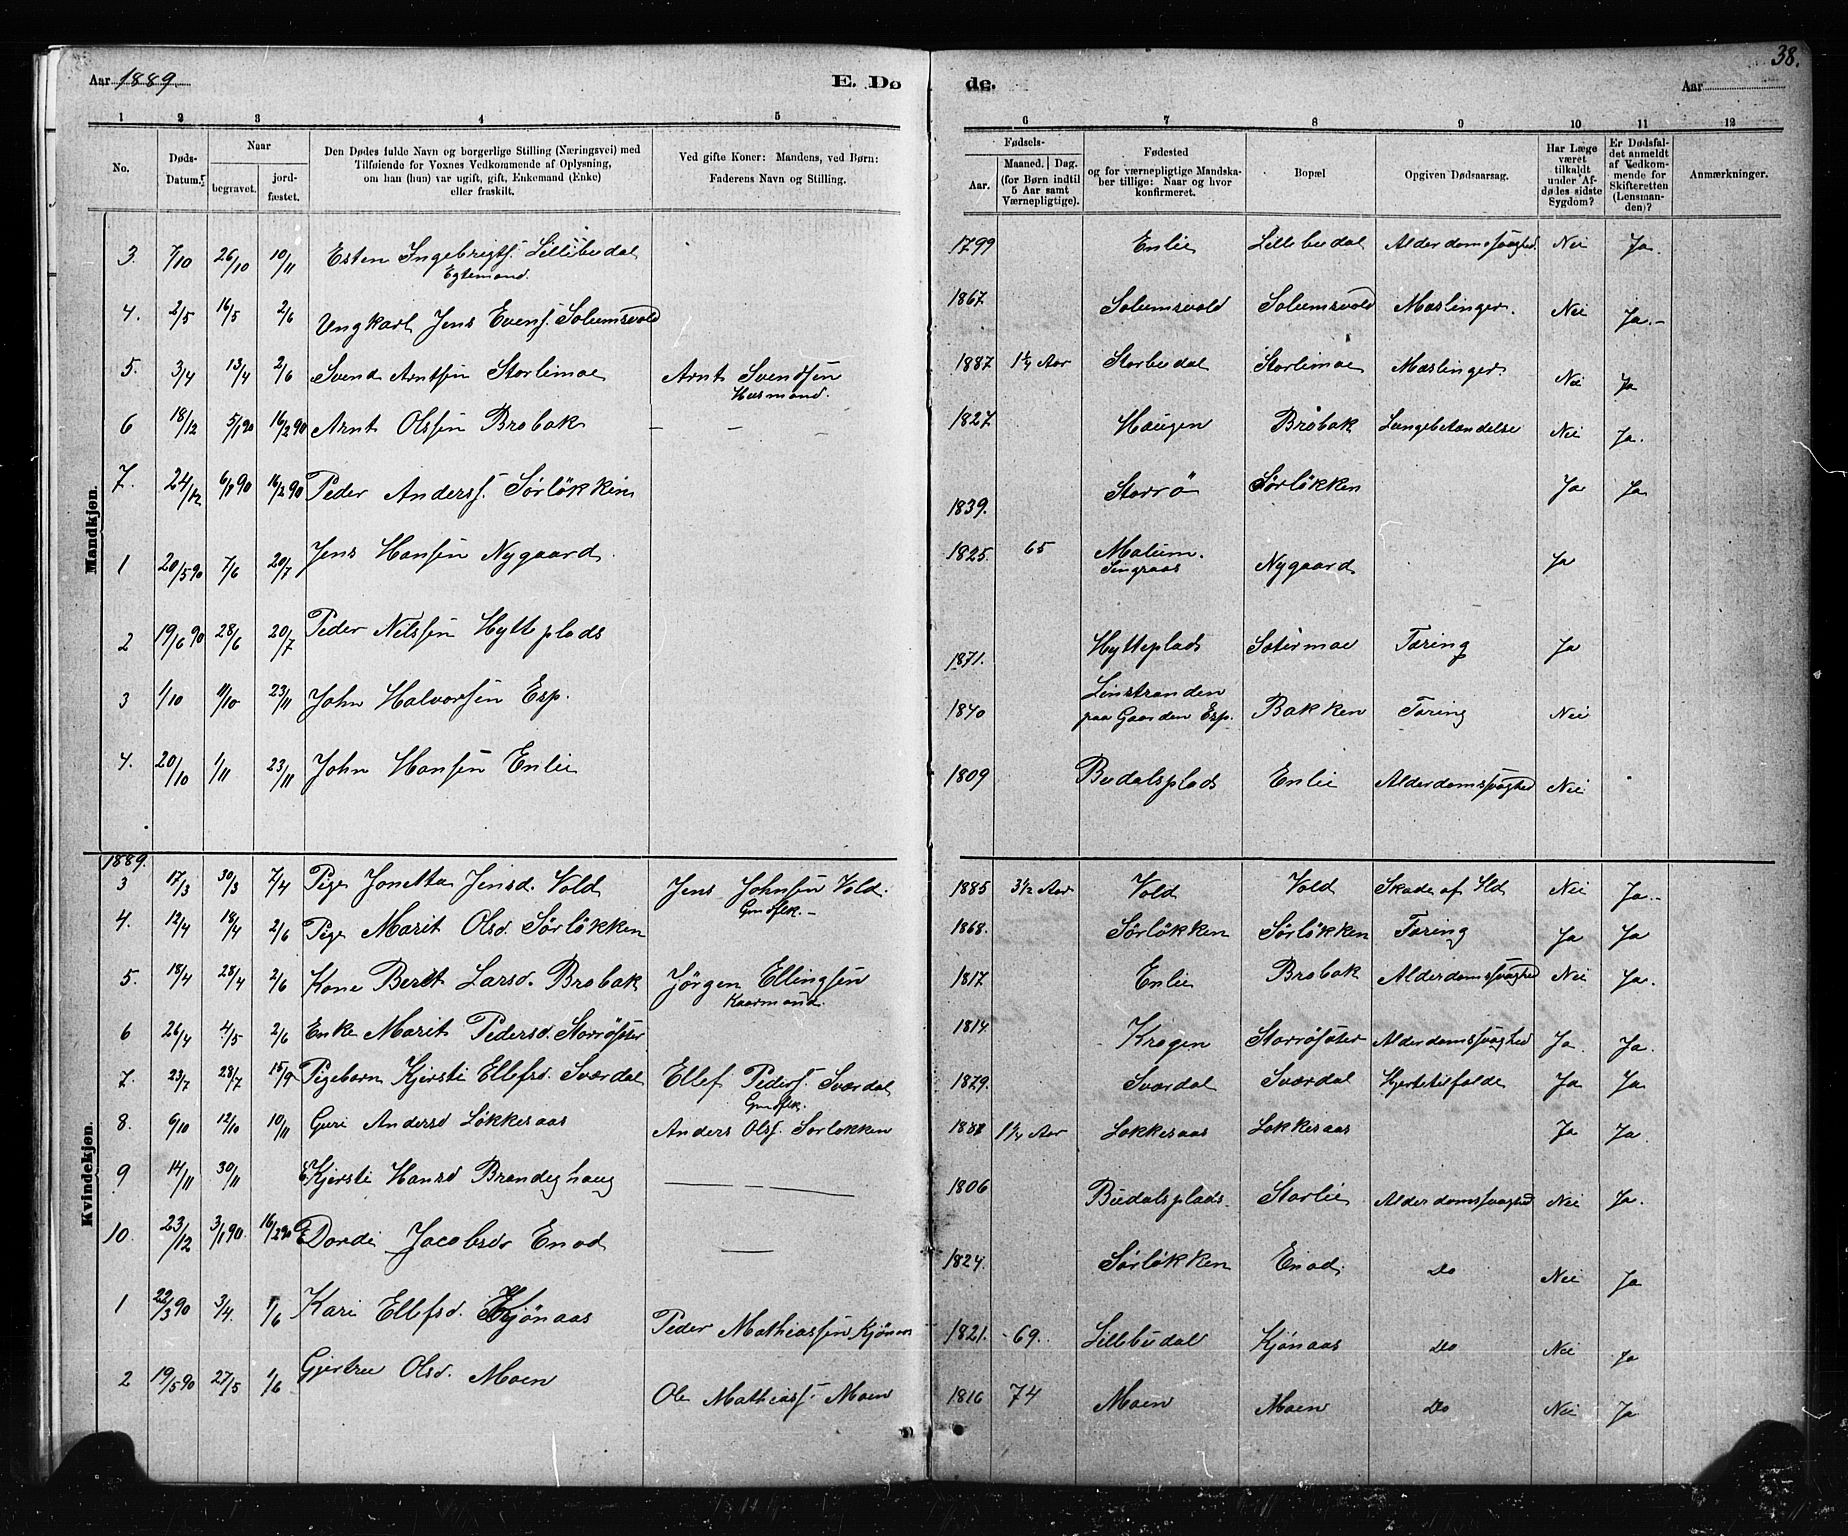 38.
Aar 1889 E. Dø de. Aar
1 2 3 4 5 6 7 8 9 10 11 12
No. Døds-Datum. Naar begravet. jordfæstet. Den Dødes fulde Navn og borgerlige Stilling (Næringsvei) med Tilføiende for Voxnes Vedkommende af Oplysning, om han (hun) var ugift, gift, Enkemand (Enke) eller fraskilt. Ved gifte Koner: Mandens, ved Børn: Faderens Navn og Stilling. Fødsels- Aar. Maaned. Dag. (for Børn indtil 5 Aar samt Værnepligtige). Fødested og for værnepligtige Mandskaber tillige: Naar og hvor konfirmeret. Bopæl Opgiven Dødsaarsag. Har Læge været tilkaldt under Afdødes sidste Sygdom? Er Dødsfaldet anmeldt af Vedkommende for Skifteretten (Lensmanden)? Anmærkninger.
Mandkjøn.
3. 7/10 26/10 10/11 Esten Ingebrigts. Lillebudal 1799 Enlie Lillebudal Alderdomssvaghed Nei Ja.
Egtemand.
4. 2/5 16/5 2/6 Ungkarl Jens Evens. Solumsvold 1867 Solumsvold Solumsvold Mæslinger. Nei Ja.
5. 3/4 13/4 2/6 Svend Arntsen Storlimoe Arnt Svendsen 1887 1¼ Aar Storbudal Storlimoe Mæslinger. Nei Ja
Husmand.
6 18/12 5/1 90 16/2 90 Arnt Olssen Brobak — — — 1827 Haugen Brobak Lungebetændelse Nei Ja.
7. 24/12 6/1 90 16/2 90 Peder Anders. Sørløkken 1839. Storrø Sørløkken Ja Ja
1 20/5 90 7/6 20/7 Jens Hansen Nygaard 1825. 65 Malum. Nygaard Ja
Singsaas
2 19/6 90 28/6 20/7 Peder Nilssen Hytteplads 1871. Hytteplads Sætermoe Tæring Ja
3 1/10 11/10 23/11 John Halvorsen Esp. 1840 Linstranden Bakken Tæring Nei
paa Gaarden Esp.
4. 20/10 1/11 23/11 John Hansen Enlie 1809 Budalsplads Enlie Alderdomssvaghed Nei
Kvindekjøn.
1889.
3 17/3 30/3 7/4 Pige Jonetta Jensd. Vold Jens Johnsen Vold. 1885 3½ Aar Vold Vold Skade af Ild Nei Ja.
4. 12/4 18/4 2/6 Pige Marit Olsd. Sørløkken 1868. Sørløkken Sørløkken Tæring Ja Ja
5. 18/4 28/4 2/6 Kone Beret Larsd. Brobak Jørgen Ellingsen 1817 Enlie Brobak Alderdomssvaghed Nei Ja.
Kaarmand.
6 26/4 4/5 2/6 Enke Marit Pedersd. Storrøsæter 1814. Krogen Storrøsæter Alderdomssvaghed Ja. Ja.
7. 23/7 28/7 15/9 Pigebarn Kjersti Ellefsd. Sværdal Ellef Peders. Sværdal 1879. Sværdal Sværdal Hjertetilfælde Ja Ja
8. 6/10 12/10 10/11 Guri Andersd Løkkesaas Anders Ols. Sørløkken 1¼ Aar Løkkesaas Løkkesaas Ja Ja.
9 14/11 30/11 Kjersti Hansd Brandeghaug — — — 1806 Budalsplads. Storlie Alderdomssvaghed Nei Ja.
10. 23/12 3/1 90. 16/2 90 Dordi Jacobsd Enod — 1824. Sørløkken Enod. Do Nei Ja
1 22/3 90 3/4. 1/6 Kari Ellefsd. Kjønaas Peder Mathiassen Kjønaas 1821. 69. Lillebudal Kjønaas Do Nei Ja
2 19/5 90 27/5 1/6 Gjertru Olsd. Moen Ole Mathiass. Moen 1816 74 Moen Moen Do Nei Ja